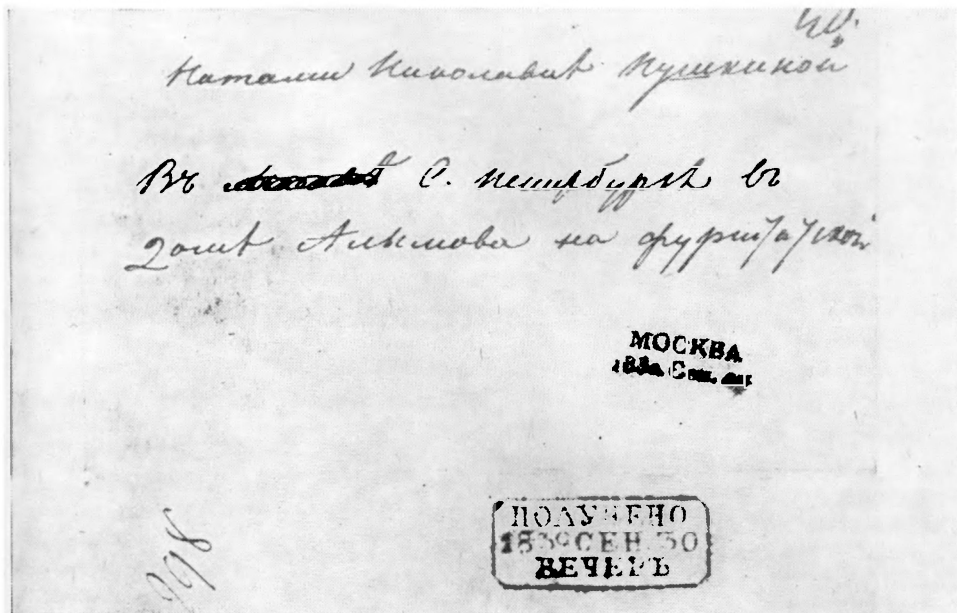 Наталіи Николавнѣ Пушкиной
Въ С. Петербургѣ въ
домѣ Алымова на фурштатской
МОСКВА
ПОЛУЧЕНО
СЕН. 30
ВЕЧЕРЪ